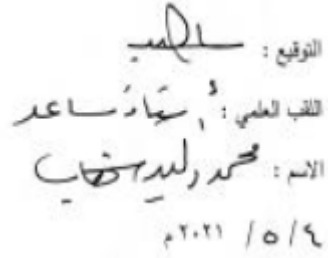 التوقيع :
اللقب العلمي : أستاذ مساعد
الاسم : محمد وليد شهاب
٤ / ٥ / ٢٠٢١م